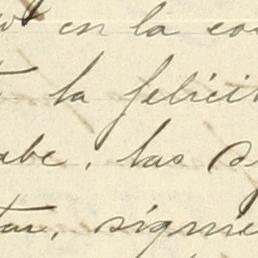 en la co
la felici
abe, las
tar, sigue